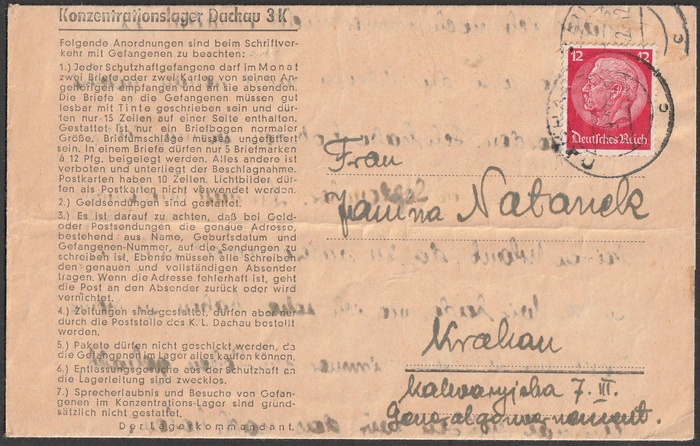 Konzentrationslager Dachau 3K
Folgende Anordnungen sind beim Schriftver-
kehr mit Gefangenen zu beachten:
1.) Jeder Schutzhaftgefangene darf im Monat
zwei Briefe oder zwei Karten von seinen An-
gehörigen empfangen und an sie absenden.
Die Briefe an die Gefangenen müssen gut
lesbar mit Tinte geschrieben sein und dür-
fen nur 15 Zeilen auf einer Seite enthalten.
Gestattet ist nur ein Briefbogen normaler
Größe. Briefumschläge müssen ungefüttert
sein. In einem Briefe dürfen nur 5 Briefmarken
à 12 Pfg. beigelegt werden. Alles andere ist
verboten und unterliegt der Beschlagnahme.
Postkarten haben 10 Zeilen. Lichtbilder dür-
fen als Postkarten nicht verwendet werden.
2.) Geldsendungen sind gestattet.
3.) Es ist darauf zu achten, daß bei Geld-
oder Postsendungen die genaue Adresse,
bestehend aus Name, Geburtsdatum und
Gefangenen-Nummer, auf die Sendungen zu
schreiben ist. Ebenso müssen alle Schreiben
den genauen und vollständigen Absender
tragen. Wenn die Adresse fehlerhaft ist, geht
die Post an den Absender zurück oder wird
vernichtet.
4.) Zeitungen sind gestattet, dürfen aber nur
durch die Poststelle des K. L. Dachau bestellt
werden.
5.) Pakete dürfen nicht geschickt werden, da
die Gefangenen im Lager alles kaufen können.
6.) Entlassungsgesuche aus der Schutzhaft an
die Lagerleitung sind zwecklos.
7.) Sprecherlaubnis und Besuche von Gefan-
genen im Konzentrations-Lager sind grund-
sätzlich nicht gestattet.
Der Lagerkommandant.
12 12
Deutsches Reich
Frau
Janina Natanek
Krakau
Kalwaryjska 7. III.
Generalgouvernement.